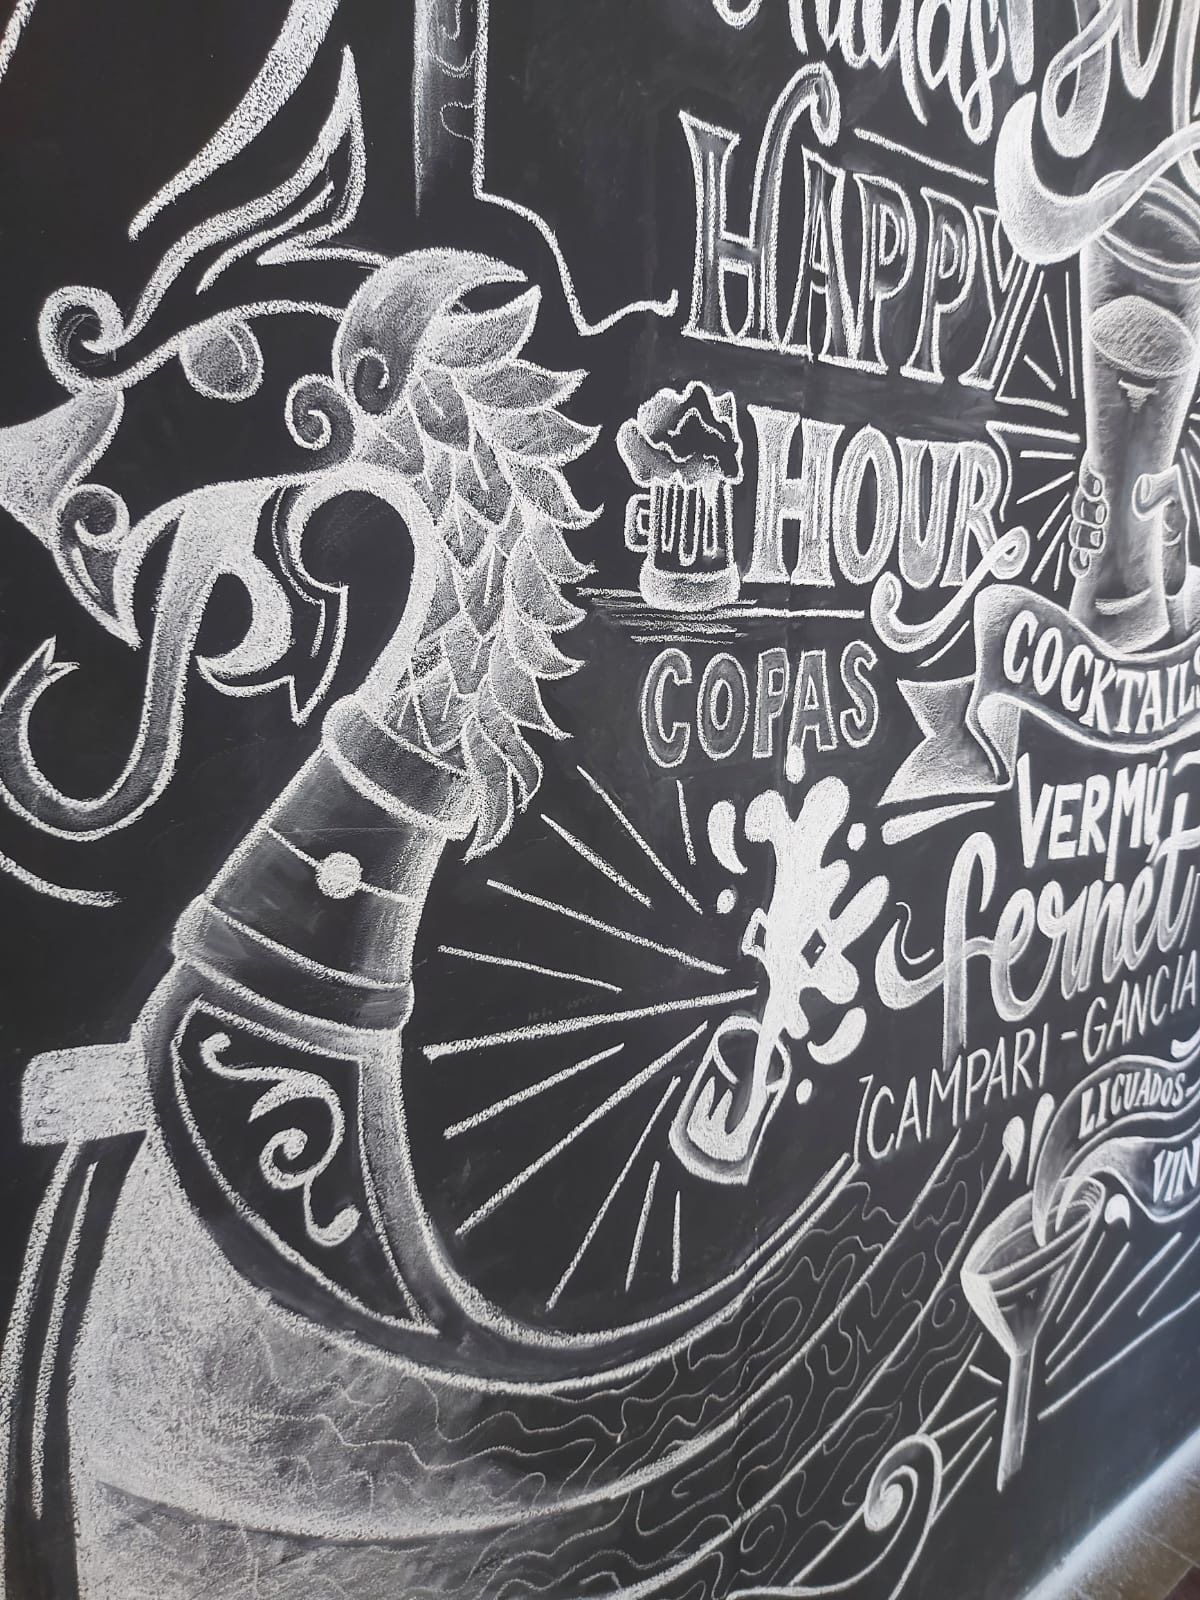 HAPPY
HOUR
COPAS
COCKTAILS
VERMÚT
fernet
CAMPARI - GANCIA
LICUADOS-
VIN